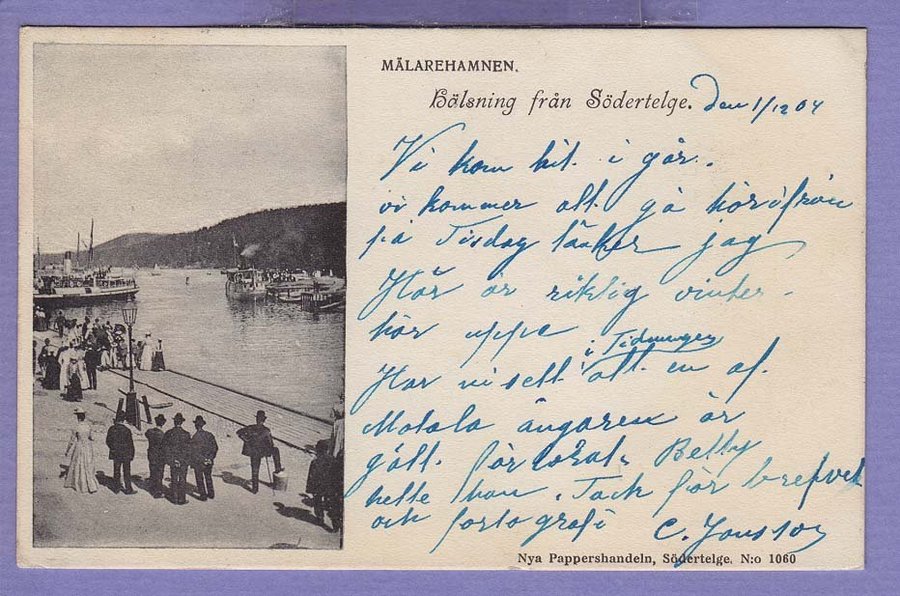 MÄLAREHAMNEN.
Hälsning från Södertelge. den 1/12 04
Vi kom hit i går.
vi kommer att gå härifrån
på Tisdag tänker jag
Här är riktig vinter
här uppe
i Tidningen
Har ni sett att en af
Motala ångaren är
gått förlorat. Betty
hette hon. Tack för brefvet
och fortografi C. Jonsson
Nya Pappershandeln, Södertelge. N:o 1060